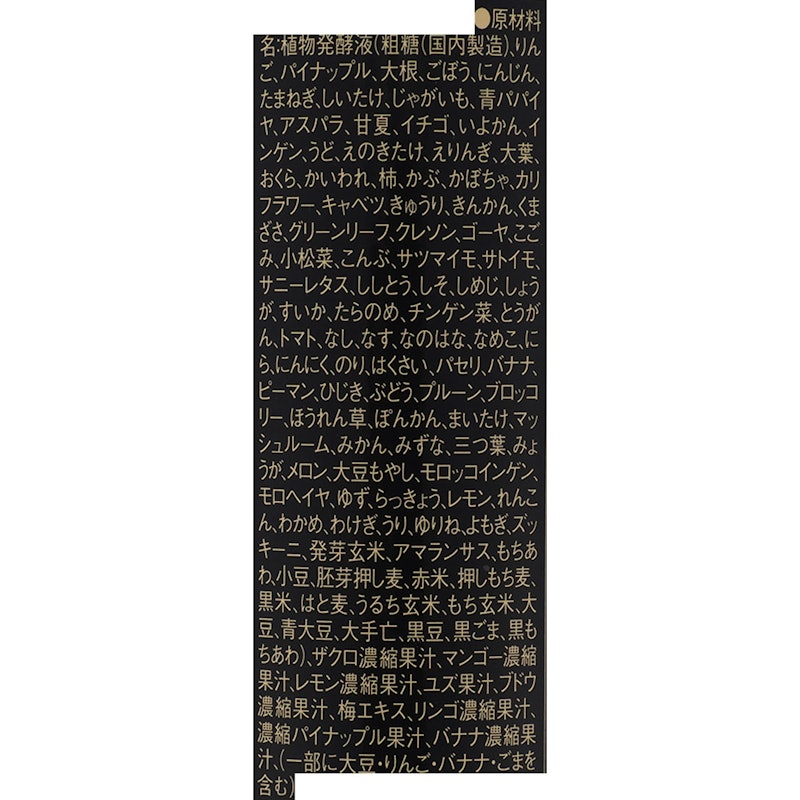 ●原材料
名:植物発酵液(粗糖(国内製造)、りん
ご、パイナップル、大根、ごぼう、にんじん、
たまねぎ、しいたけ、じゃがいも、青パパイ
ヤ、アスパラ、甘夏、イチゴ、いよかん、イ
ンゲン、うど、えのきたけ、えりんぎ、大葉、
おくら、かいわれ、柿、かぶ、かぼちゃ、カリ
フラワー、キャベツ、きゅうり、きんかん、くま
ざさ、グリーンリーフ、クレソン、ゴーヤ、こご
み、小松菜、こんぶ、サツマイモ、サトイモ、
サニーレタス、ししとう、しそ、しめじ、しょう
が、すいか、たらのめ、チンゲン菜、とうが
ん、トマト、なし、なす、なのはな、なめこ、に
ら、にんにく、のり、はくさい、パセリ、バナナ、
ピーマン、ひじき、ぶどう、プルーン、ブロッコ
リー、ほうれん草、ぽんかん、まいたけ、マッ
シュルーム、みかん、みずな、三つ葉、みょ
うが、メロン、大豆もやし、モロッコインゲン、
モロヘイヤ、ゆず、らっきょう、レモン、れんこ
ん、わかめ、わけぎ、うり、ゆりね、よもぎ、ズッ
キーニ、発芽玄米、アマランサス、もちあ
わ、小豆、胚芽押し麦、赤米、押しもち麦、
黒米、はと麦、うるち玄米、もち玄米、大
豆、青大豆、大手亡、黒豆、黒ごま、黒も
ちあわ)、ザクロ濃縮果汁、マンゴー濃縮
果汁、レモン濃縮果汁、ユズ果汁、ブドウ
濃縮果汁、梅エキス、リンゴ濃縮果汁、
濃縮パイナップル果汁、バナナ濃縮果
汁、(一部に大豆・りんご・バナナ・ごまを
含む)